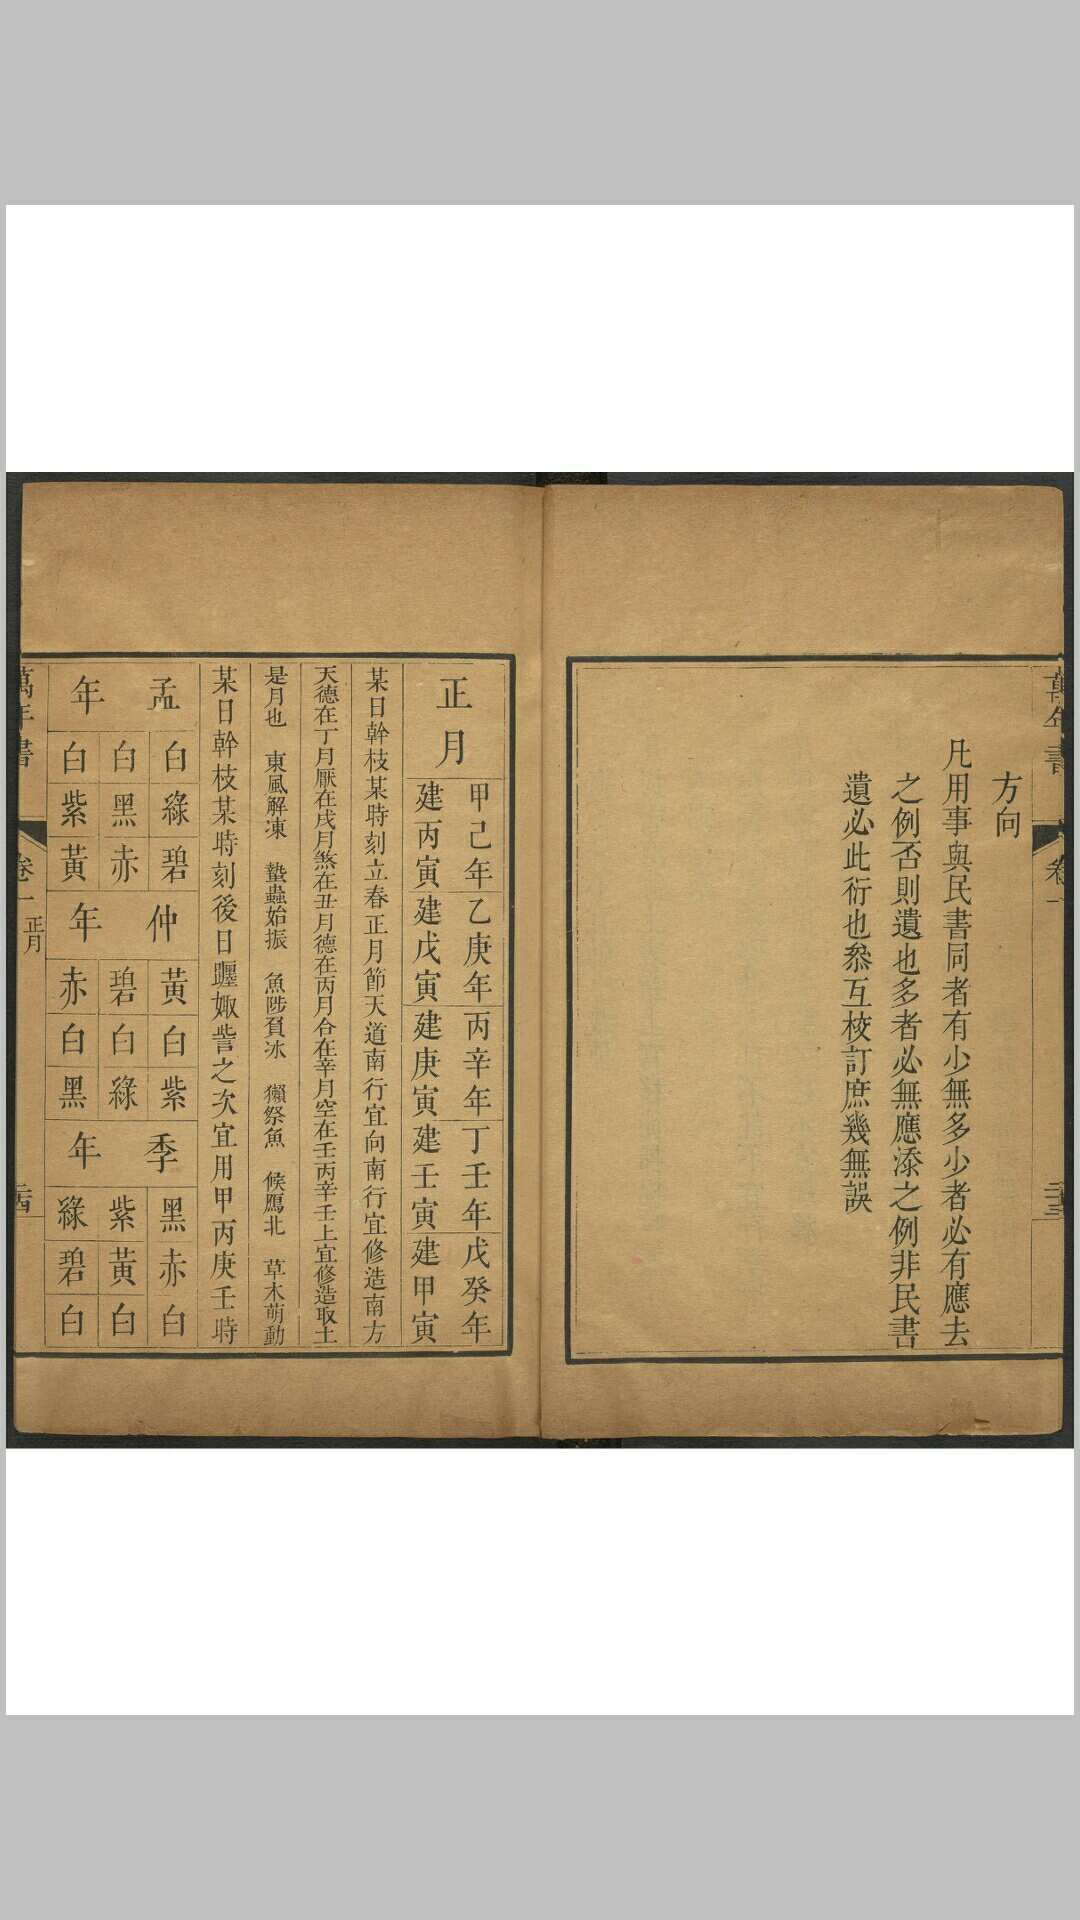 萬年書
卷一
二十三
方向
凡用事與民書同者有少無多少者必有應去
之例否則遺也多者必無應添之例非民書
遺必此衍也叅互校訂庶幾無誤
正月
甲己年 乙庚年 丙辛年 丁壬年 戊癸年
建丙寅 建戊寅 建庚寅 建壬寅 建甲寅
某日幹枝某時刻立春正月節天道南行宜向南行宜修造南方
天德在丁月厭在戌月煞在丑月德在丙月合在辛月空在壬丙辛壬上宜修造取土
是月也 東風解凍 蟄蟲始振 魚陟負冰 獺祭魚 候鴈北 草木萌動
某日幹枝某時刻後日躔娵訾之次宜用甲丙庚壬時
孟年
白 白 白
綠 黑 紫
碧 赤 黃
仲年
黃 碧 赤
白 白 白
紫 綠 黑
季年
黑 紫 綠
赤 黃 碧
白 白 白
萬年書
卷一
正月
二十四